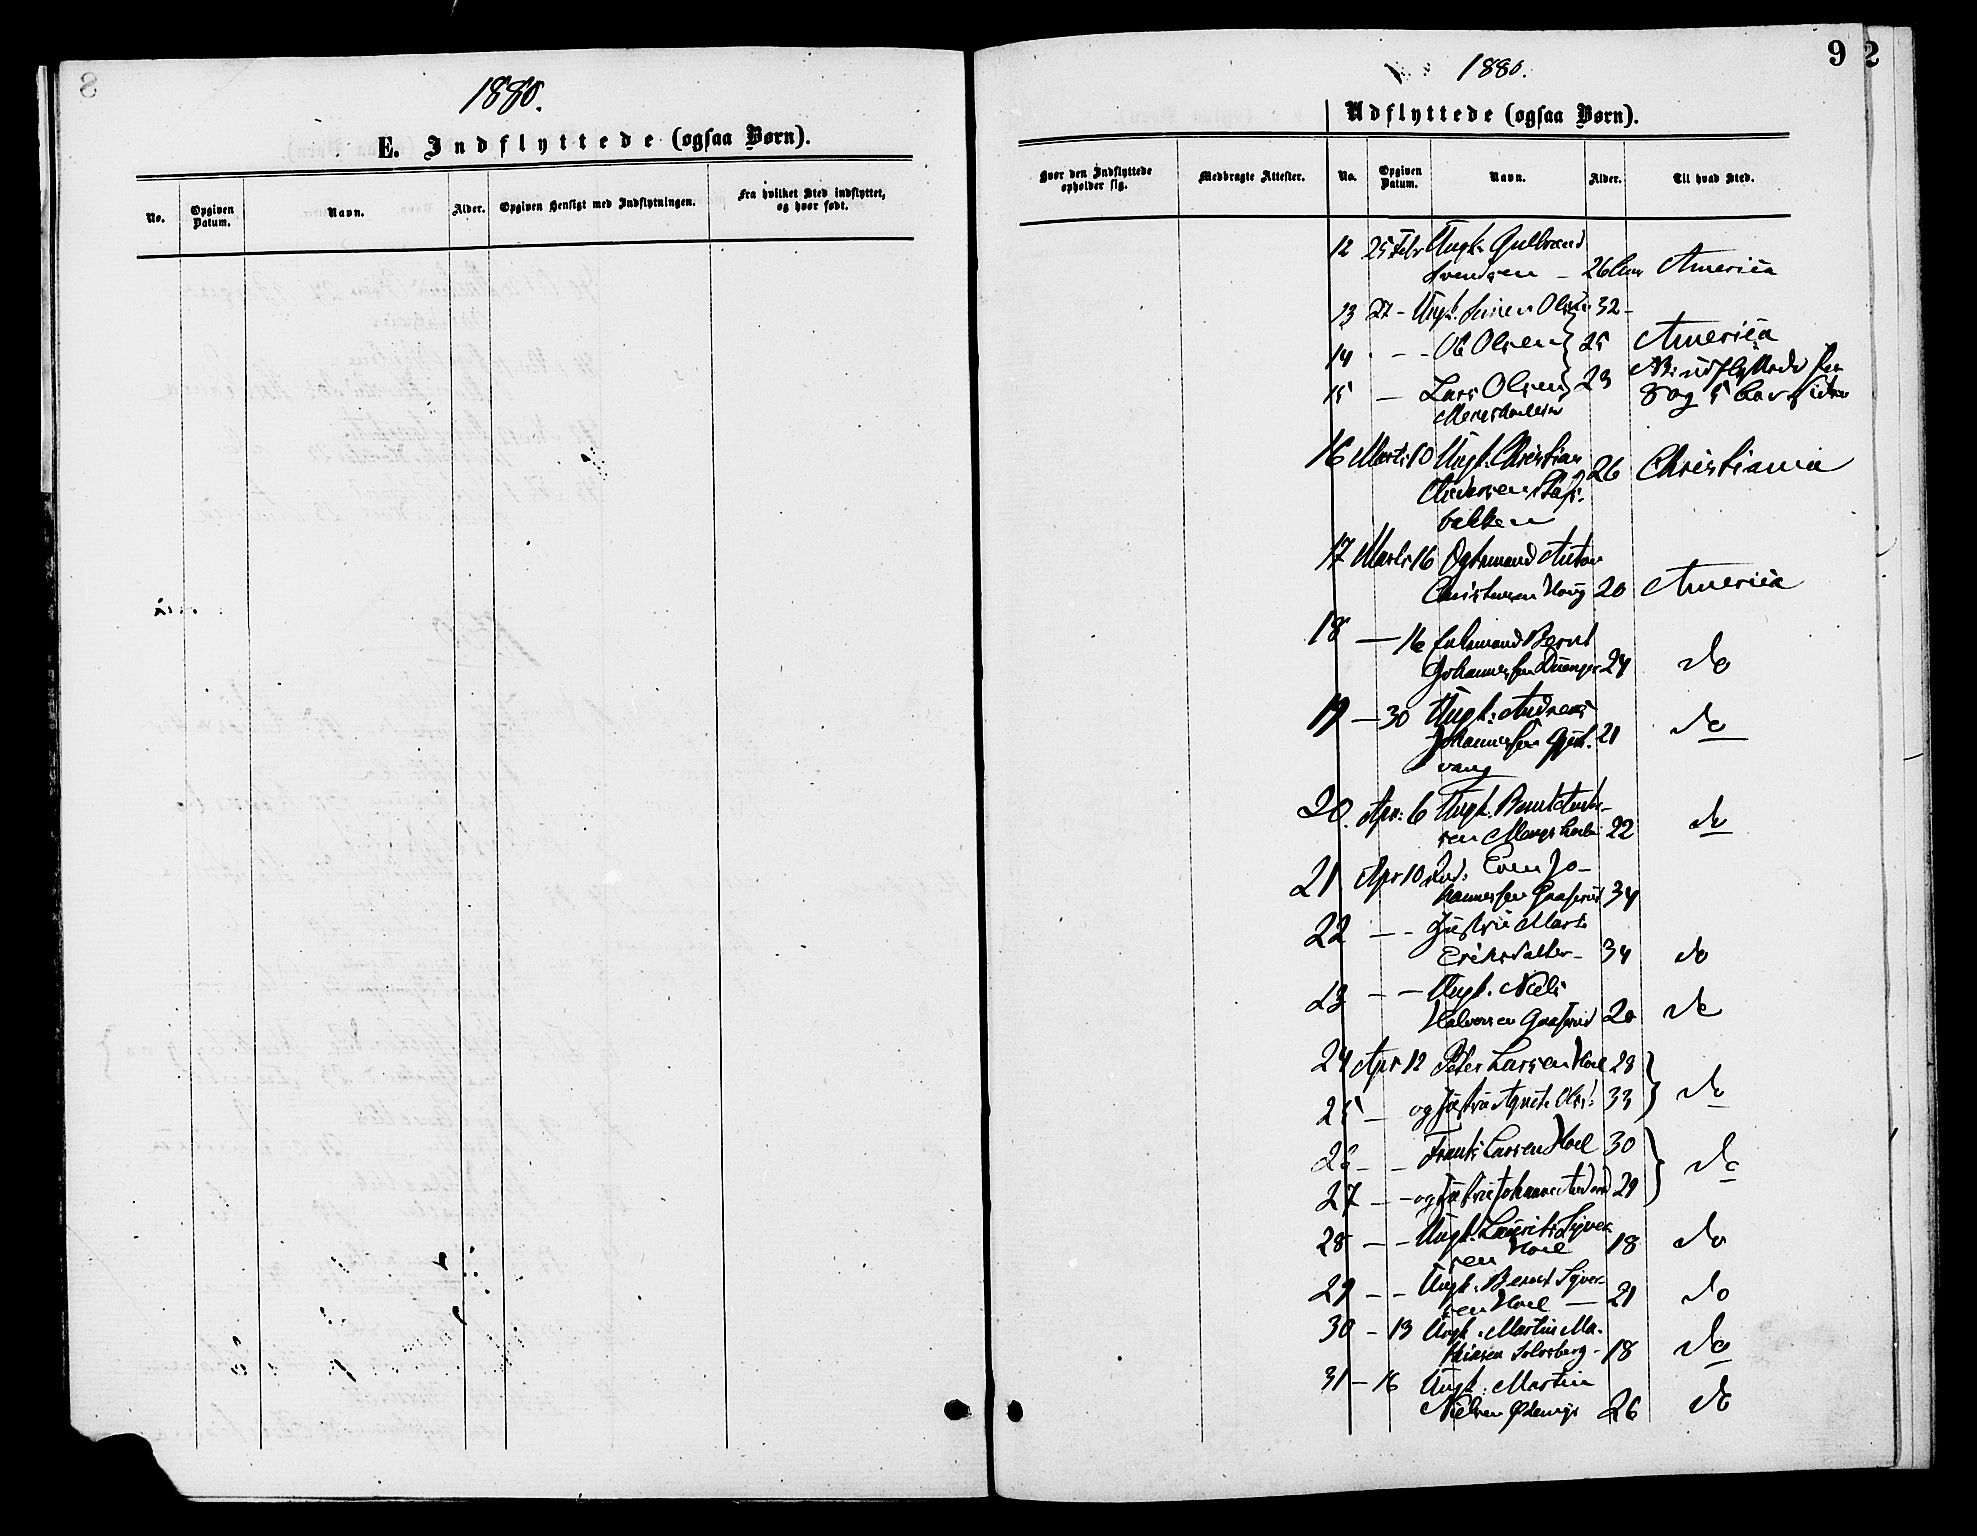 8
1880.
E. Indflyttede (ogsaa Børn).
No.
Opgiven Datum.
Navn.
Alder.
Opgiven Hensigt med Indflytningen.
Fra hvilket Sted indflyttet, og hvor født.
1880.
9
2
Udflyttede (ogsaa Børn).
Hvor den Indflyttede opholder sig.
Medbragte Attester.
No.
Opgiven Datum.
Navn.
Alder.
Til hvad Sted.
12 25 Febr Ungk: Gulbrand
Svendsen - 26 America
13 27 - Ungk. Simen Olsen 32 -
14 - - Ole Olsen 25 America
15 — Lars Olsen 23 NB: udflyttede for
8 og 5 Aar siden
16 Marts 10 Ungk. Christian 26 Christiania
Andersen
bakken
17 Marts 16 Anton
Christensen Haug 20 America
18 — 16 Bernt
Johannessen 24 do
19 — 30 Ungk: Andreas
Johannessen 21 do
vang
20. Apr: 6 Ungk. Bernt Ander-
sen 22 do
21 Apr 10 Even Jo-
hannessen Gaaserud 34
22 - - Hustru Marte
Eriksdatter - 34 do
23 - - Ungk. Niels
Halvorsen Gaaserud 20 do
24 Apr 12 Peter Larsen Hoel 28
25 — og Hustru Agnete Olsd: 33 do
26 - - Frants Larsen Hoel 30
27 - - og Hustru Johanne 29 do
28 - - Ungk. Laurits Syver
sen Hoel 18 do
29 - - Ungk. Bernt Syver-
sen Hoel — 21 do
30 - 13 Ungk. Martin Ma-
thiasen Solberg - 18 do
31 - 16 Ungk. Martin
Nielsen 26 do